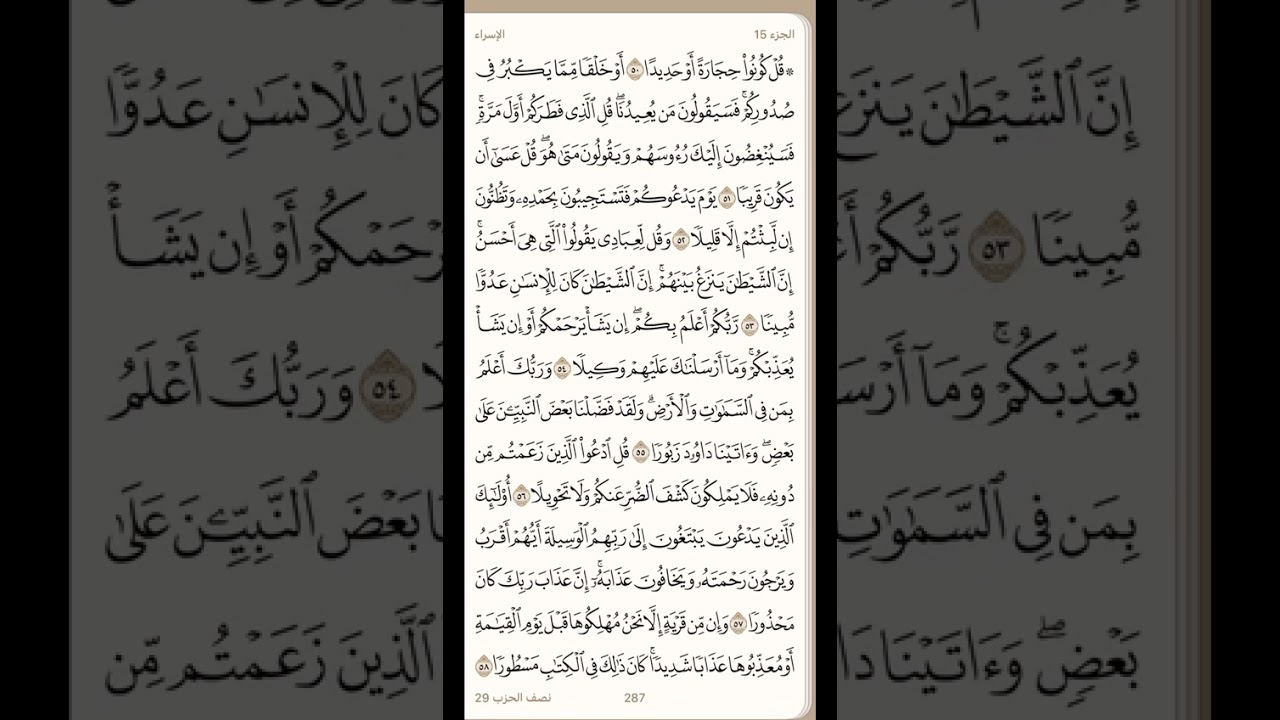 الجزء 15
الإسراء
۞ قُلْ كُونُوا۟ حِجَارَةً أَوْ حَدِيدًا ٥٠ أَوْ خَلْقًا مِّمَّا يَكْبُرُ فِى
صُدُورِكُمْ ۚ فَسَيَقُولُونَ مَن يُعِيدُنَا ۖ قُلِ ٱلَّذِى فَطَرَكُمْ أَوَّلَ مَرَّةٍ ۚ
فَسَيُنْغِضُونَ إِلَيْكَ رُءُوسَهُمْ وَيَقُولُونَ مَتَىٰ هُوَ ۖ قُلْ عَسَىٰٓ أَن
يَكُونَ قَرِيبًا ٥١ يَوْمَ يَدْعُوكُمْ فَتَسْتَجِيبُونَ بِحَمْدِهِۦ وَتَظُنُّونَ
إِن لَّبِثْتُمْ إِلَّا قَلِيلًا ٥٢ وَقُل لِّعِبَادِى يَقُولُوا۟ ٱلَّتِى هِىَ أَحْسَنُ ۚ
إِنَّ ٱلشَّيْطَـٰنَ يَنزَغُ بَيْنَهُمْ ۚ إِنَّ ٱلشَّيْطَـٰنَ كَانَ لِلْإِنسَـٰنِ عَدُوًّا
مُّبِينًا ٥٣ رَّبُّكُمْ أَعْلَمُ بِكُمْ ۖ إِن يَشَأْ يَرْحَمْكُمْ أَوْ إِن يَشَأْ
يُعَذِّبْكُمْ ۚ وَمَآ أَرْسَلْنَـٰكَ عَلَيْهِمْ وَكِيلًا ٥٤ وَرَبُّكَ أَعْلَمُ
بِمَن فِى ٱلسَّمَـٰوَٰتِ وَٱلْأَرْضِ ۗ وَلَقَدْ فَضَّلْنَا بَعْضَ ٱلنَّبِيِّـۧنَ عَلَىٰ
بَعْضٍ ۖ وَءَاتَيْنَا دَاوُۥدَ زَبُورًا ٥٥ قُلِ ٱدْعُوا۟ ٱلَّذِينَ زَعَمْتُم مِّن
دُونِهِۦ فَلَا يَمْلِكُونَ كَشْفَ ٱلضُّرِّ عَنكُمْ وَلَا تَحْوِيلًا ٥٦ أُو۟لَـٰٓئِكَ
ٱلَّذِينَ يَدْعُونَ يَبْتَغُونَ إِلَىٰ رَبِّهِمُ ٱلْوَسِيلَةَ أَيُّهُمْ أَقْرَبُ
وَيَرْجُونَ رَحْمَتَهُۥ وَيَخَافُونَ عَذَابَهُۥٓ ۚ إِنَّ عَذَابَ رَبِّكَ كَانَ
مَحْذُورًا ٥٧ وَإِن مِّن قَرْيَةٍ إِلَّا نَحْنُ مُهْلِكُوهَا قَبْلَ يَوْمِ ٱلْقِيَـٰمَةِ
أَوْ مُعَذِّبُوهَا عَذَابًا شَدِيدًا ۚ كَانَ ذَٰلِكَ فِى ٱلْكِتَـٰبِ مَسْطُورًا ٥٨
287
نصف الحزب 29
إِنَّ ٱلشَّيْطَـٰنَ يَنزَغُ
كَانَ لِلْإِنسَـٰنِ عَدُوًّا
مُّبِينًا ٥٣ رَّبُّكُمْ
يَرْحَمْكُمْ أَوْ إِن يَشَأْ
يُعَذِّبْكُمْ ۚ وَمَآ
٥٤ وَرَبُّكَ أَعْلَمُ
بِمَن فِى ٱلسَّمَـٰوَٰتِ
بَعْضَ ٱلنَّبِيِّـۧنَ عَلَىٰ
بَعْضٍ ۖ وَءَاتَيْنَا
ٱلَّذِينَ زَعَمْتُم مِّن